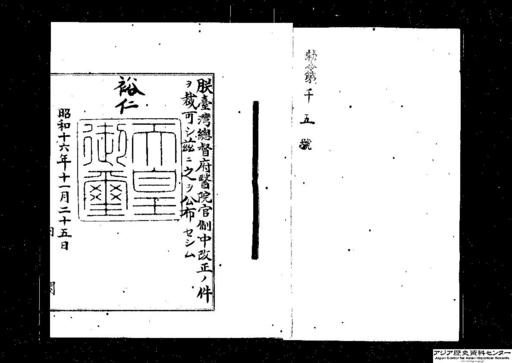 勅令第千五號
朕臺灣總督府醫院官制中改正ノ件
ヲ裁可シ茲ニ之ヲ公布セシム
裕仁
天皇
御璽
昭和十六年十一月二十五日
アジア歴史資料センター
Japan Center for Asian Historical Records